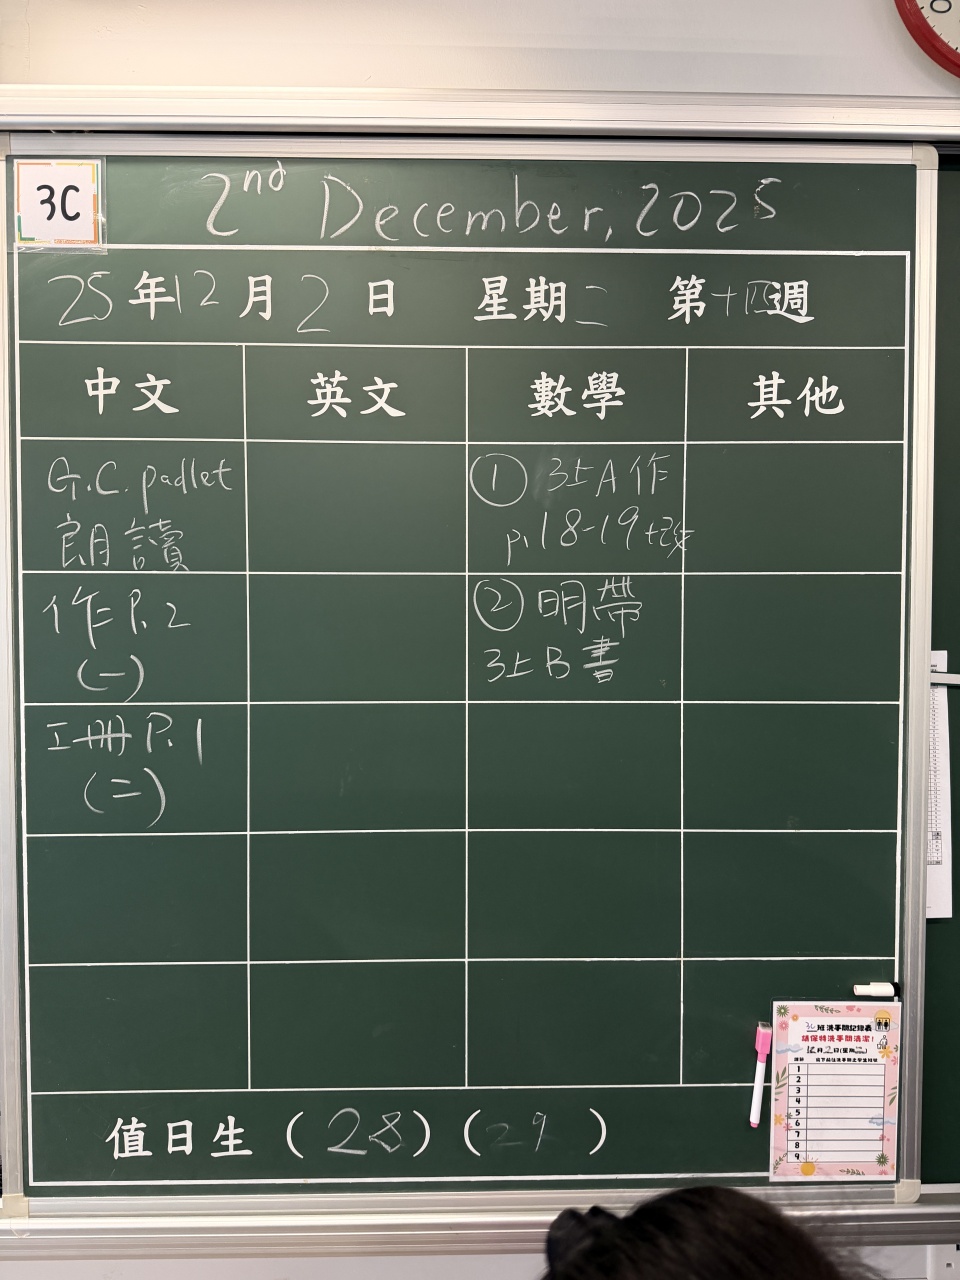 3C
2nd December, 2025
25年12月2日 星期二 第十四週
中文 英文 數學 其他
G.C. padlet
朗讀
① 3上A作
p.18-19+改
作 P.2
(一)
② 明帶
3上B書
工冊 P.1
(二)
值日生 (28) (29)
3C班洗手間記錄表
請保持洗手間清潔!
12月2日(星期二)
1
2
3
4
5
6
7
8
9